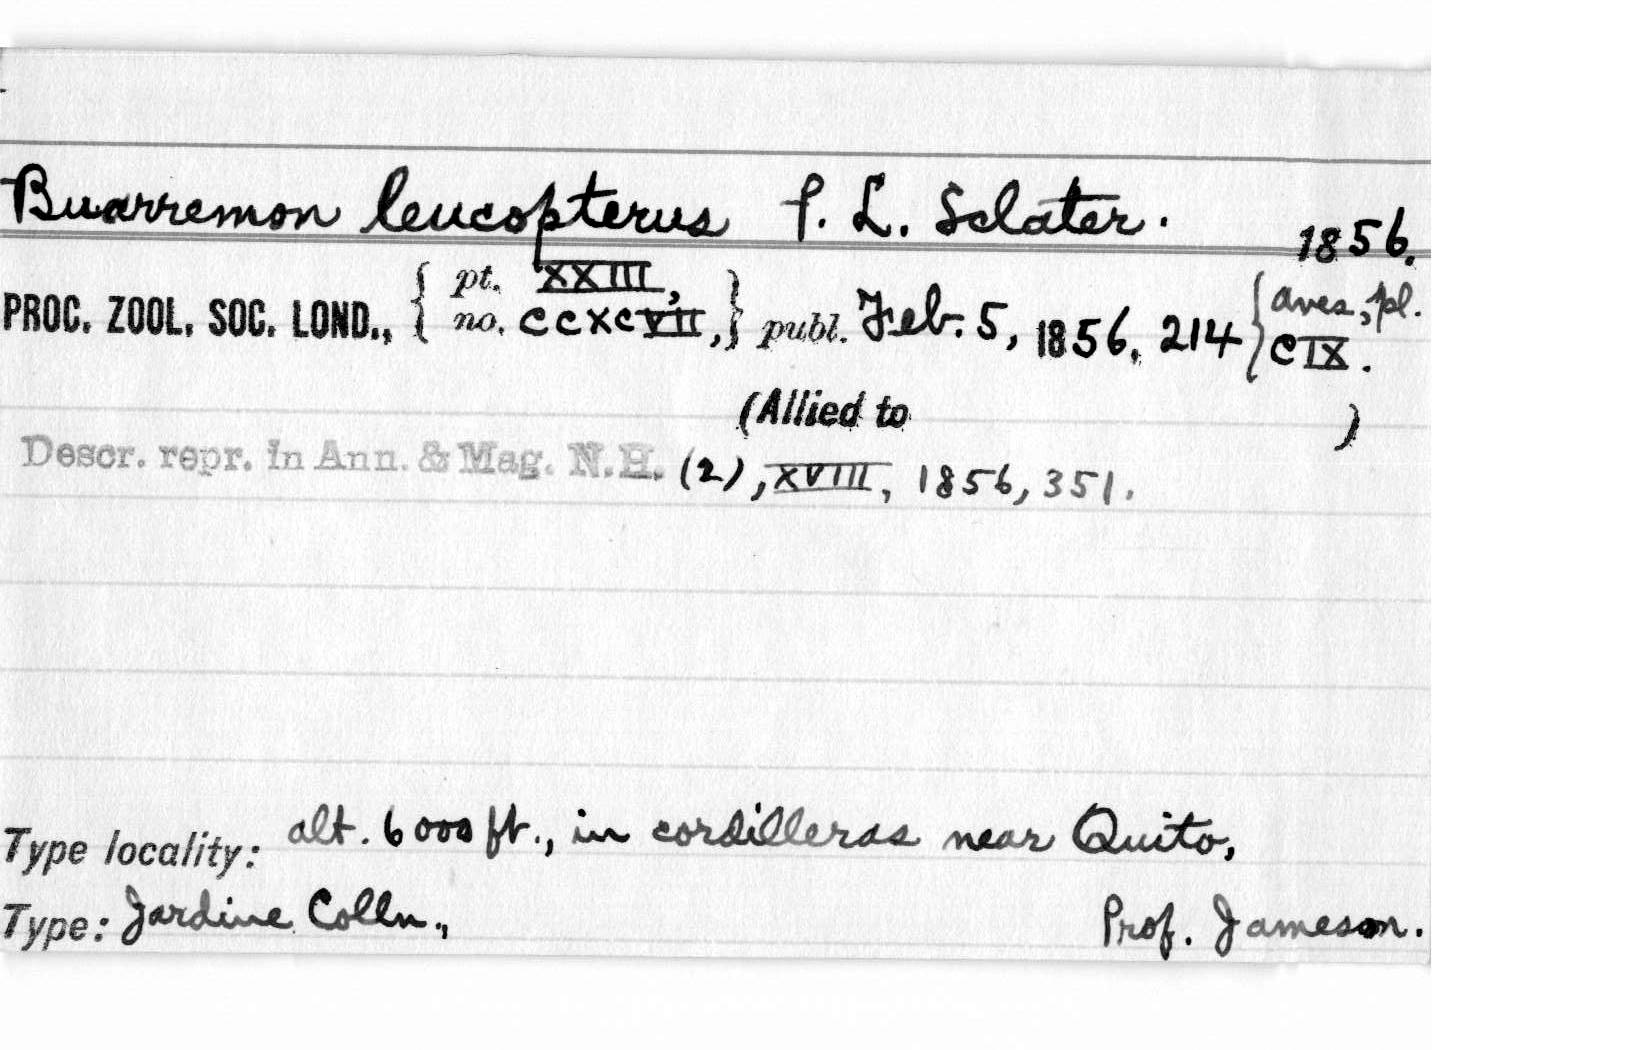 Buarremon leucopterus P. L. Sclater. 1856.
PROC. ZOOL. SOC. LOND., { pt. XXIII, no. CCXCVII, } publ. Feb. 5, 1856, 214 { Aves, pl. CIX.
(Allied to )
Descr. repr. in Ann. & Mag. N.H. (2), XVIII, 1856, 351.
Type locality: alt. 6000 ft., in cordilleras near Quito,
Type: Jardine Colln., Prof. Jameson.